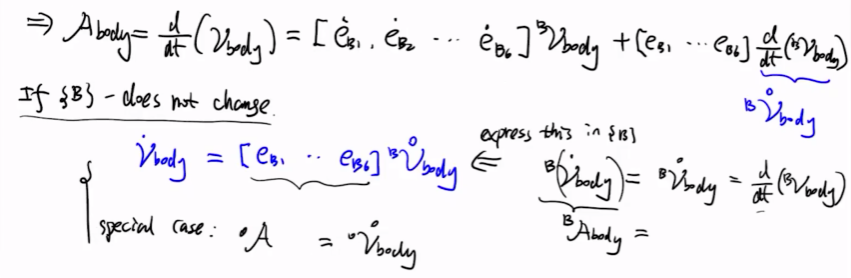 ⇒ 𝒜body = d/dt (𝒱body) = [ ė_B1, ė_B2 ⋯ ė_B6 ] ᴮ𝒱body + [e_B1 ⋯ e_B6] d/dt (ᴮ𝒱body)
ᴮ𝒱̊body
If {B} - does not change.
𝒱̇body = [e_B1 ⋯ e_B6] ᴮ𝒱̊body ⇐ express this in {B}
ᴮ(𝒱̇body) = ᴮ𝒱̊body = d/dt (ᴮ𝒱body)
ᴮ𝒜body =
special case: ⁰𝒜 = ⁰𝒱̊body